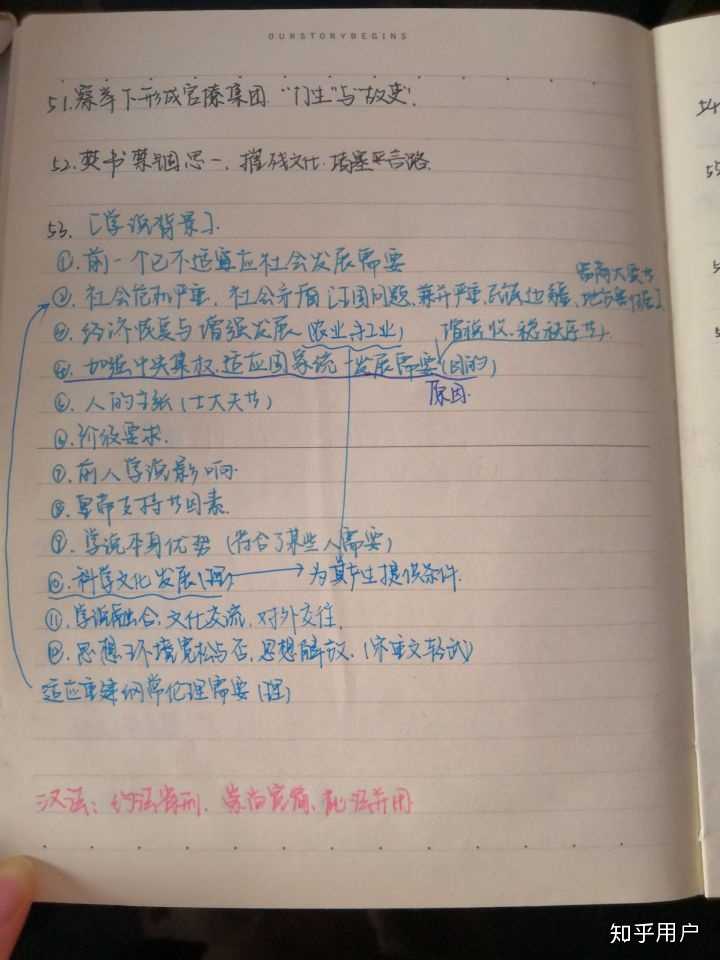 OURSTORYBEGINS
51.察举下形成官僚集团."门生"与"故吏".
52.焚书禁锢思一.摧残文化.堵塞平言路.
53.【学派背景】.
①.前一个已不适宜应社会发展需要
富商大贾与
②.社会危机严重.社会矛盾 问题.兼并严重.
③.经济恢复与增强发展(农业、手工业) 增税收.稳秩序
④.加强中央集权.适应国家统一发展需要(目的)
原因.
⑤.人的 (士大夫 )
⑥.阶级要求.
⑦.前人学说影响.
⑧.皇帝支持 因素.
⑨.学说本身优势 (符合了某些人需要)
⑩.科学文化发展(理) → 为其产生提供条件.
⑪.学派融合.文化交流.对外交往.
⑫.思想环境宽松与否.思想解放.(宋重文轻武)
适应重建纲常伦理需要(理)
汉法: 约法省刑.崇尚宽简.礼法并用
54
55
知乎用户